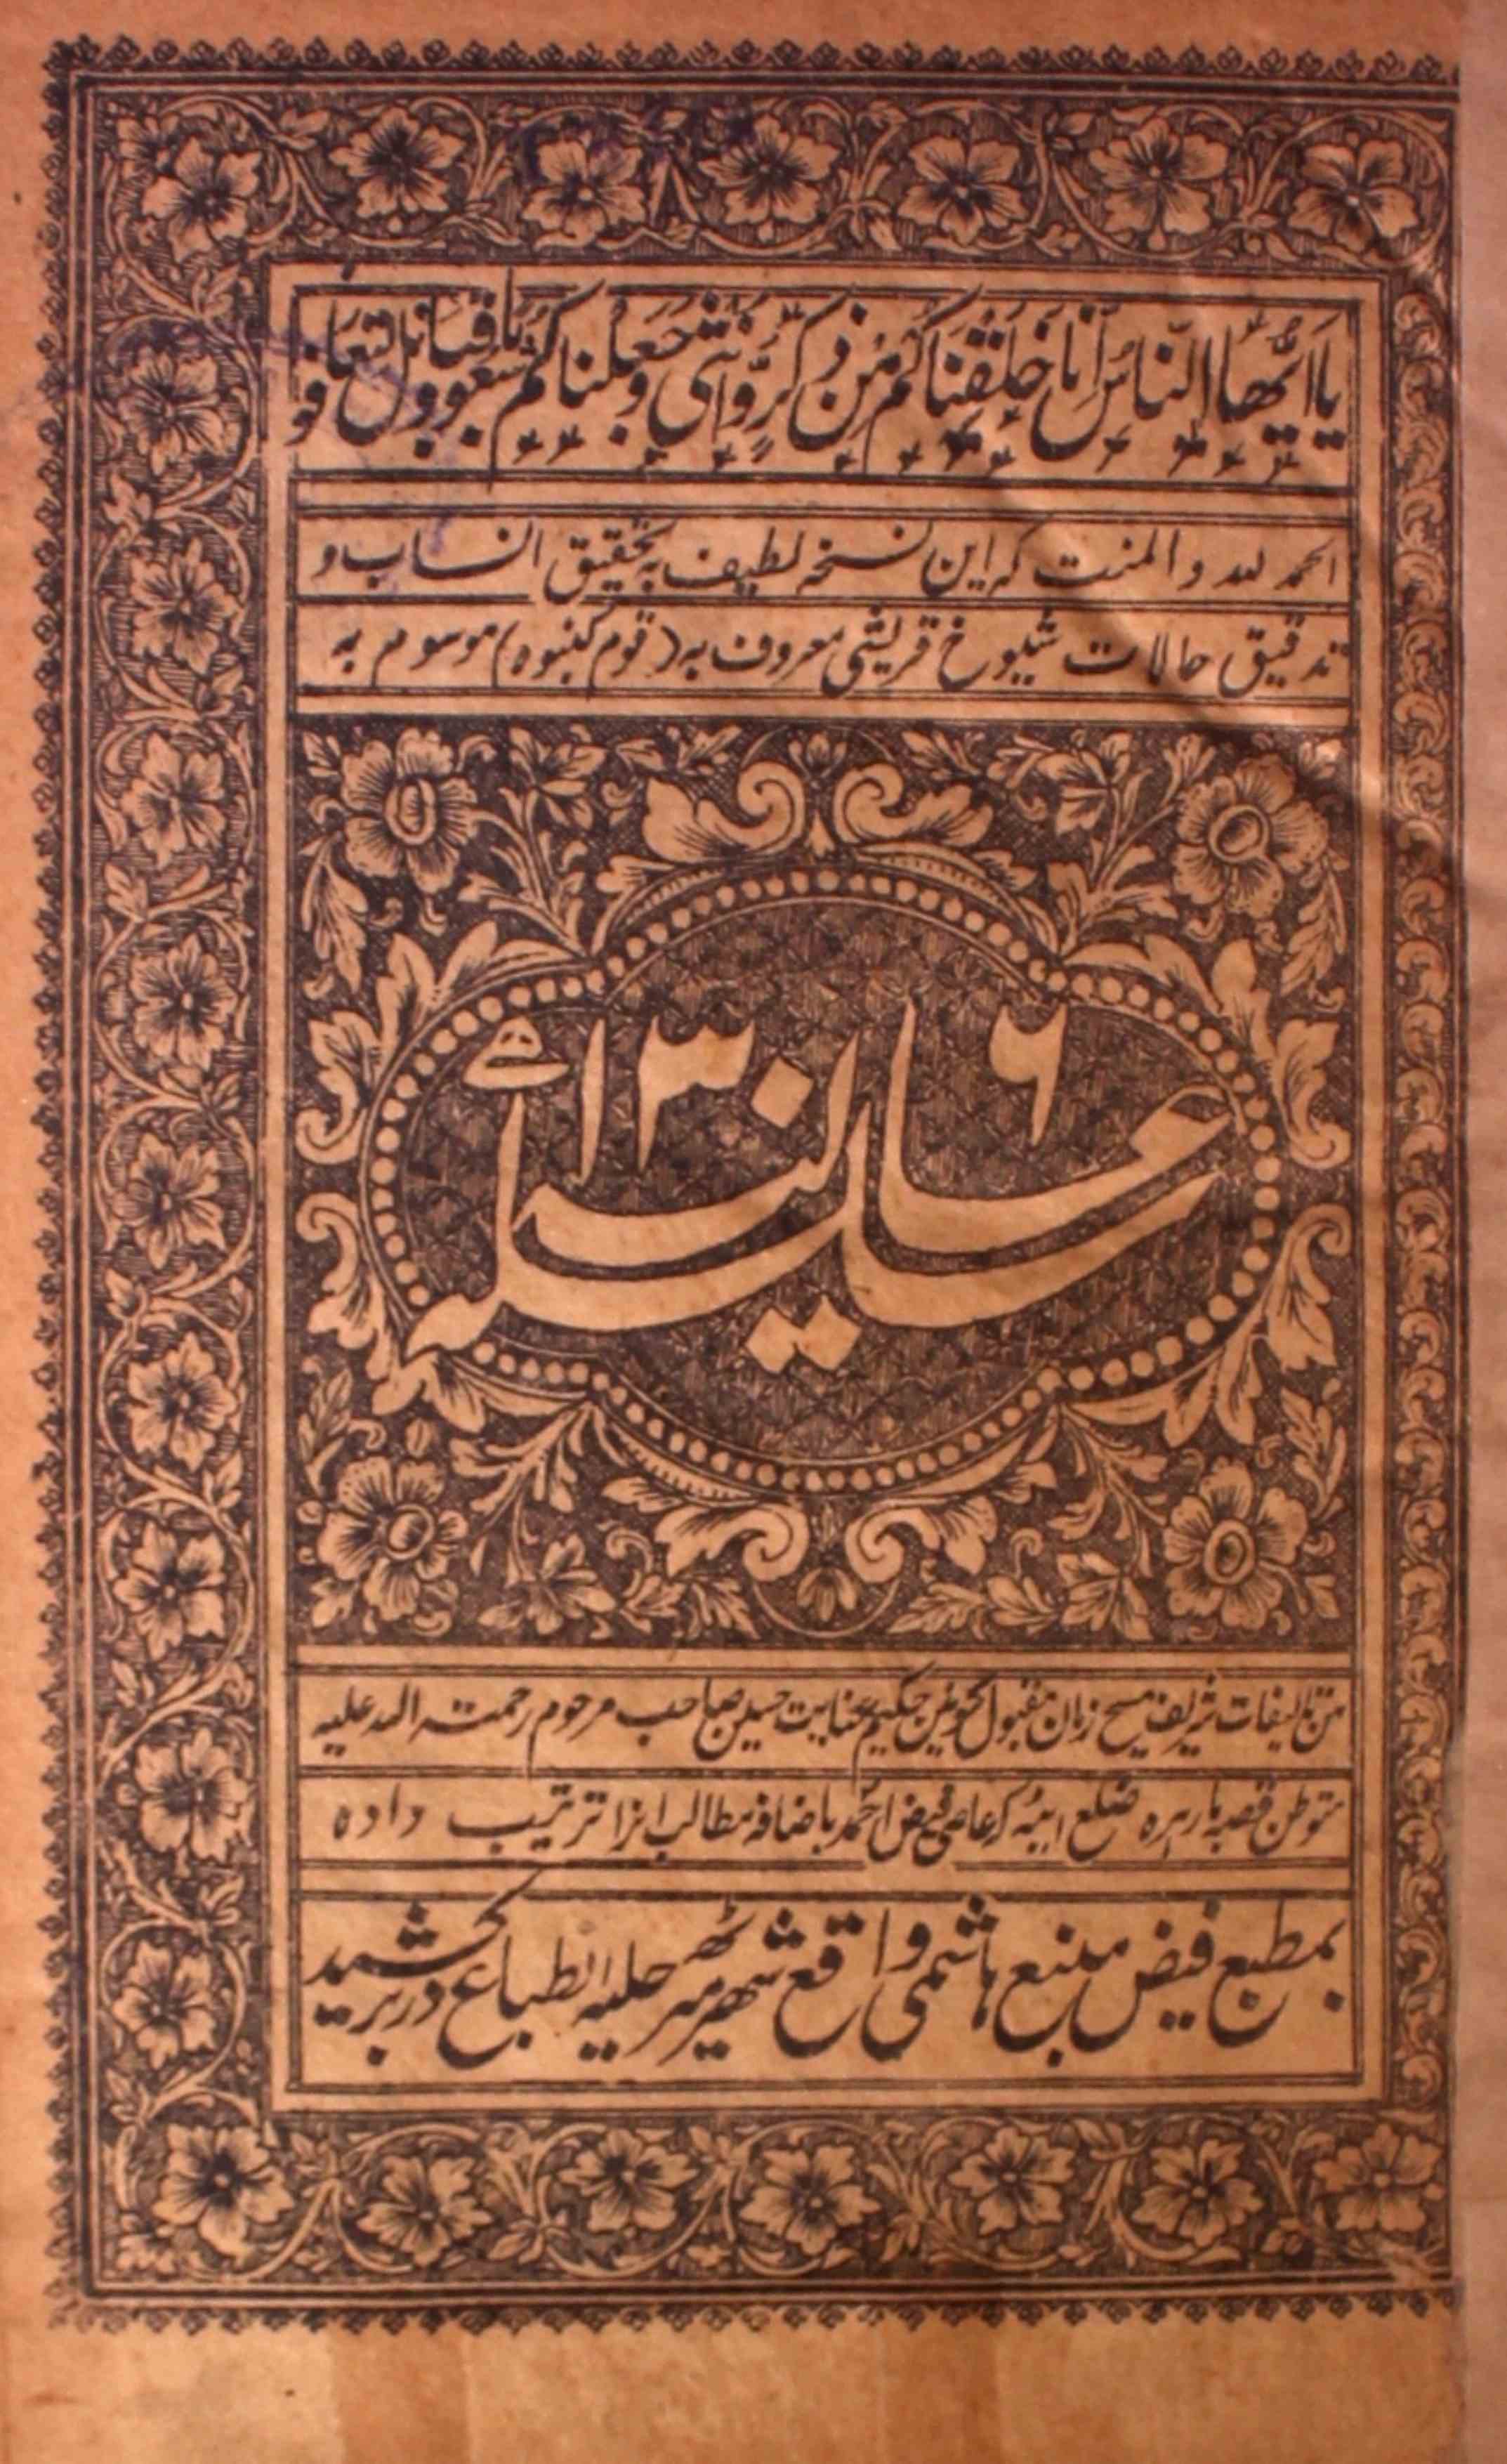 یَا اَیُّهَا النَّاسُ اِنَّا خَلَقْنَاکُمْ مِنْ ذَکَرٍ وَّاُنْثٰی وَجَعَلْنَاکُمْ شُعُوْبًا وَّقَبَائِلَ لِتَعَارَفُوْا
الحمد لله والمنت که این نسخهٔ لطیف به تحقیق انساب و
تدقیق حالات شیوخ قریشی معروف به (قوم کنبوه) موسوم به
۱۳۰۶
من تالیفات شریف مسیح زمان مقبول حکیم عنایت حسین صاحب مرحوم رحمته الله علیه
متوطن قصبه مارهره ضلع ایٹه که عاصی فیض احمد باضافه مطالب انرا ترتیب داده
بمطبع فیض منبع هاشمی واقع شهر میرٹھ حلیه انطباع در بر کشید